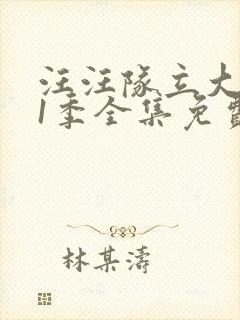 汪汪队立大
1季全集免费
林某濤